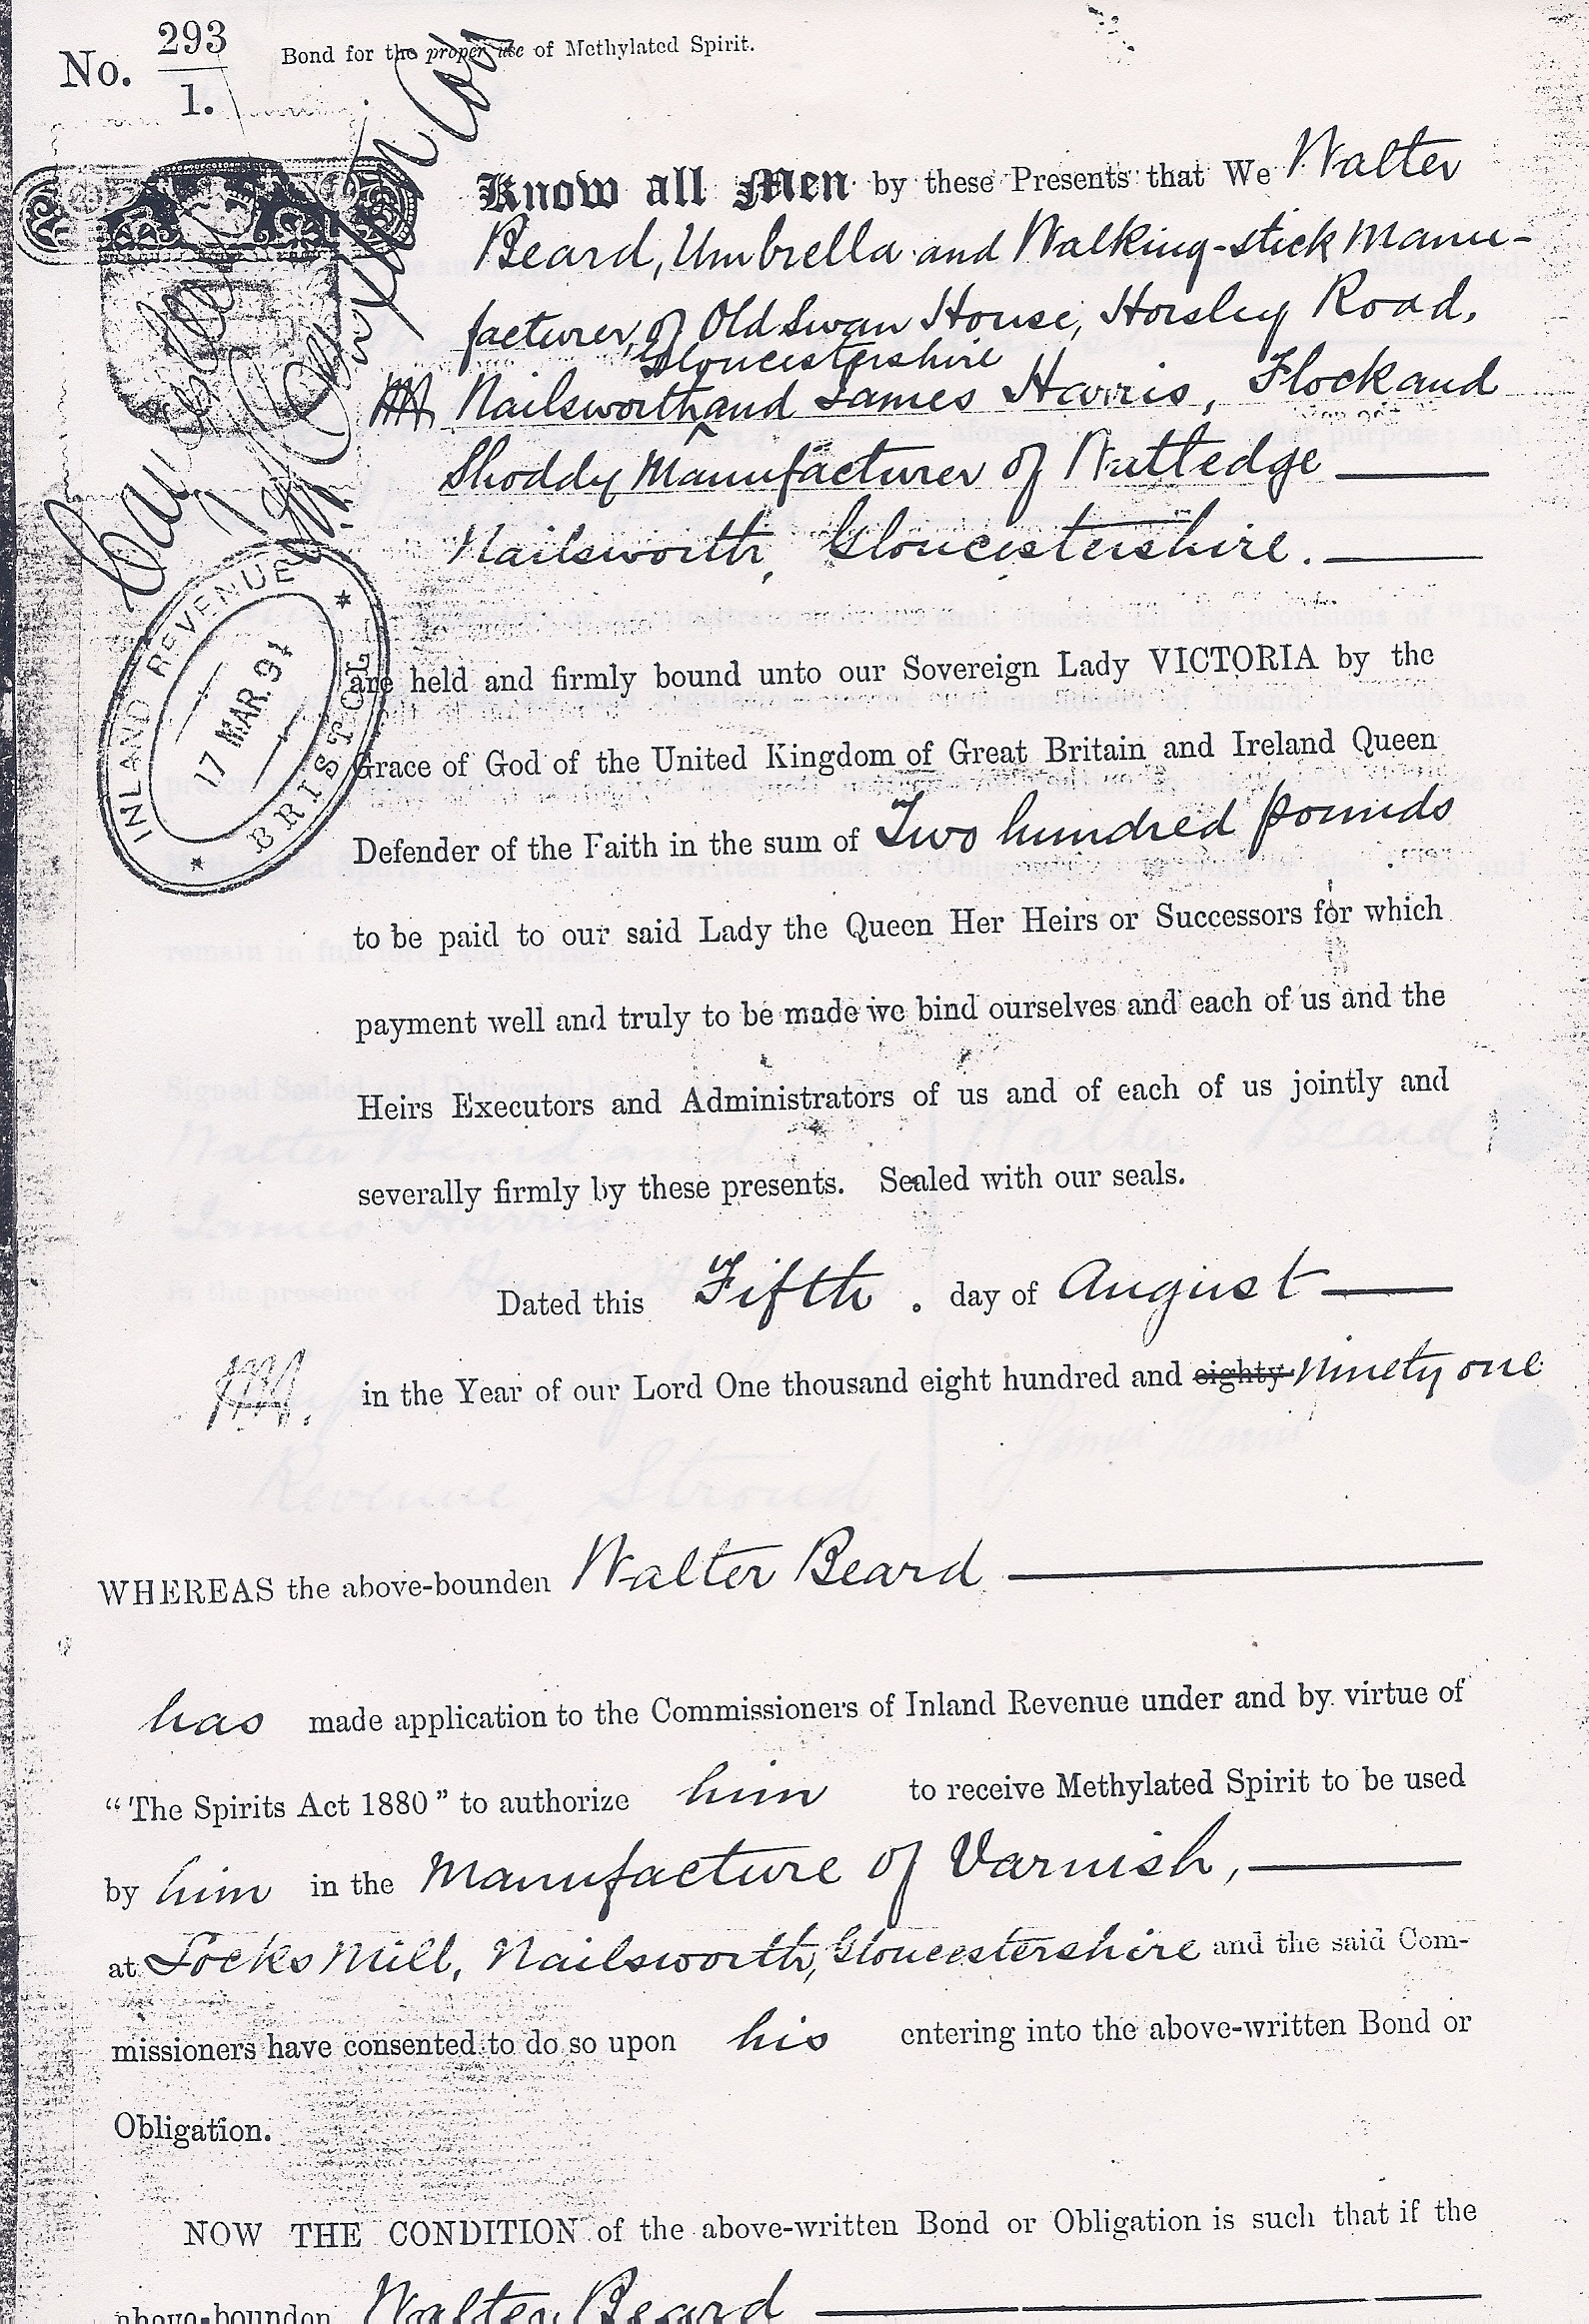 No. 293
1.
Bond for the proper use of Methylated Spirit.
Know all Men by these Presents that We Walter
Beard, Umbrella and Walking-stick Manu-
facturer, of Old Swan House, Horsley Road,
Gloucestershire
Nailsworth and James Harris, Flock and
Shoddy Manufacturer of Nutledge
Nailsworth, Gloucestershire.
INLAND REVENUE
17 MAR. 91
BRISTOL
are held and firmly bound unto our Sovereign Lady VICTORIA by the
Grace of God of the United Kingdom of Great Britain and Ireland Queen
Defender of the Faith in the sum of Two hundred pounds
to be paid to our said Lady the Queen Her Heirs or Successors for which
payment well and truly to be made we bind ourselves and each of us and the
Heirs Executors and Administrators of us and of each of us jointly and
severally firmly by these presents. Sealed with our seals.
Dated this Fifth. day of August
in the Year of our Lord One thousand eight hundred and eighty ninety one
WHEREAS the above-bounden Walter Beard
has made application to the Commissioners of Inland Revenue under and by virtue of
"The Spirits Act 1880" to authorize him to receive Methylated Spirit to be used
by him in the Manufacture of Varnish,
at Locks Mill, Nailsworth, Gloucestershire and the said Com-
missioners have consented to do so upon his entering into the above-written Bond or
Obligation.
NOW THE CONDITION of the above-written Bond or Obligation is such that if the
above-bounden Walter Beard